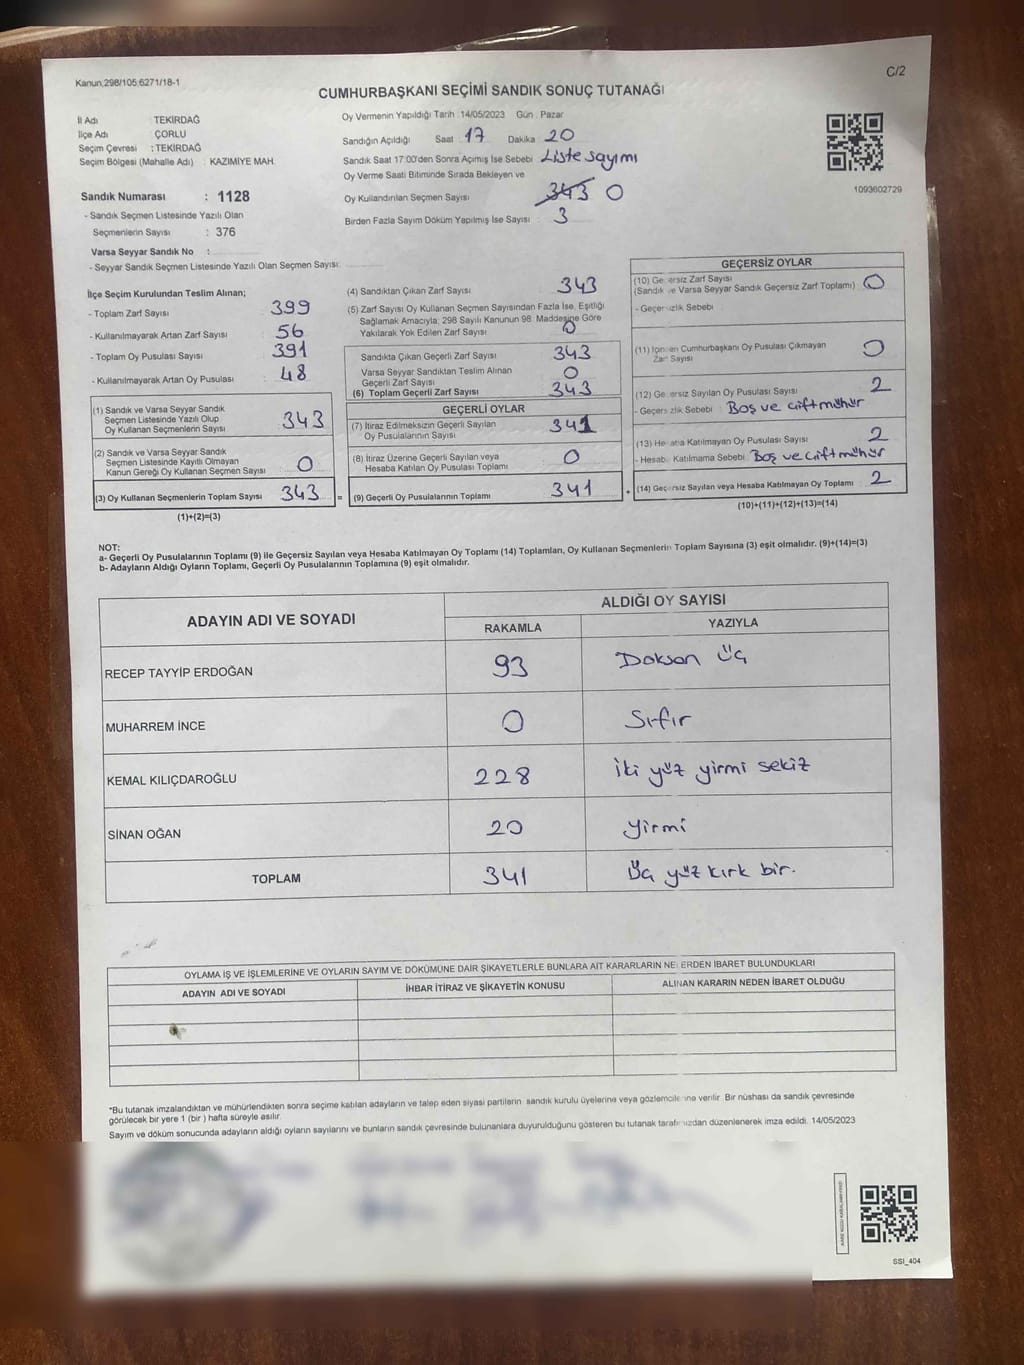 Kanun;298/105;6271/18-1
C/2
CUMHURBAŞKANI SEÇİMİ SANDIK SONUÇ TUTANAĞI
İl Adı TEKİRDAĞ
İlçe Adı ÇORLU
Seçim Çevresi : TEKİRDAĞ
Seçim Bölgesi (Mahalle Adı) : KAZIMİYE MAH.
Sandık Numarası : 1128
- Sandık Seçmen Listesinde Yazılı Olan
Seçmenlerin Sayısı : 376
Varsa Seyyar Sandık No :
- Seyyar Sandık Seçmen Listesinde Yazılı Olan Seçmen Sayısı:
Oy Vermenin Yapıldığı Tarih : 14/05/2023 Gün : Pazar
Sandığın Açıldığı Saat : 17 Dakika : 20
Sandık Saat 17:00'den Sonra Açılmış İse Sebebi : Liste sayımı
Oy Verme Saati Bitiminde Sırada Bekleyen ve
Oy Kullandırılan Seçmen Sayısı : 343 0
Birden Fazla Sayım Döküm Yapılmış İse Sayısı : 3
1093602729
İlçe Seçim Kurulundan Teslim Alınan;
- Toplam Zarf Sayısı : 399
- Kullanılmayarak Artan Zarf Sayısı : 56
- Toplam Oy Pusulası Sayısı : 391
- Kullanılmayarak Artan Oy Pusulası : 48
(1) Sandık ve Varsa Seyyar Sandık
Seçmen Listesinde Yazılı Olup
Oy Kullanan Seçmenlerin Sayısı : 343
(2) Sandık ve Varsa Seyyar Sandık
Seçmen Listesinde Kayıtlı Olmayan
Kanun Gereği Oy Kullanan Seçmen Sayısı : 0
(3) Oy Kullanan Seçmenlerin Toplam Sayısı : 343 =
(1)+(2)=(3)
(4) Sandıktan Çıkan Zarf Sayısı : 343
(5) Zarf Sayısı Oy Kullanan Seçmen Sayısından Fazla İse, Eşitliği
Sağlamak Amacıyla; 298 Sayılı Kanunun 98. Maddesine Göre
Yakılarak Yok Edilen Zarf Sayısı : 0
Sandıkta Çıkan Geçerli Zarf Sayısı : 343
Varsa Seyyar Sandıktan Teslim Alınan
Geçerli Zarf Sayısı : 0
(6) Toplam Geçerli Zarf Sayısı : 343
GEÇERLİ OYLAR
(7) İtiraz Edilmeksizin Geçerli Sayılan
Oy Pusulalarının Sayısı : 341
(8) İtiraz Üzerine Geçerli Sayılan veya
Hesaba Katılan Oy Pusulası Toplamı : 0
(9) Geçerli Oy Pusulalarının Toplamı : 341 +
GEÇERSİZ OYLAR
(10) Geçersiz Zarf Sayısı
(Sandık ve Varsa Seyyar Sandık Geçersiz Zarf Toplamı) : 0
- Geçersizlik Sebebi :
(11) İçinden Cumhurbaşkanı Oy Pusulası Çıkmayan
Zarf Sayısı : 0
(12) Geçersiz Sayılan Oy Pusulası Sayısı : 2
- Geçersizlik Sebebi : Boş ve çift mühür
(13) Hesaba Katılmayan Oy Pusulası Sayısı : 2
- Hesaba Katılmama Sebebi : Boş ve çift mühür
(14) Geçersiz Sayılan veya Hesaba Katılmayan Oy Toplamı : 2
(10)+(11)+(12)+(13)=(14)
NOT:
a- Geçerli Oy Pusulalarının Toplamı (9) ile Geçersiz Sayılan veya Hesaba Katılmayan Oy Toplamı (14) Toplamları, Oy Kullanan Seçmenlerin Toplam Sayısına (3) eşit olmalıdır. (9)+(14)=(3)
b- Adayların Aldığı Oyların Toplamı, Geçerli Oy Pusulalarının Toplamına (9) eşit olmalıdır.
ADAYIN ADI VE SOYADI
ALDIĞI OY SAYISI
RAKAMLA YAZIYLA
RECEP TAYYİP ERDOĞAN 93 Doksan üç
MUHARREM İNCE 0 Sıfır
KEMAL KILIÇDAROĞLU 228 iki yüz yirmi sekiz
SİNAN OĞAN 20 yirmi
TOPLAM 341 Üç yüz kırk bir.
OYLAMA İŞ VE İŞLEMLERİNE VE OYLARIN SAYIM VE DÖKÜMÜNE DAİR ŞİKAYETLERLE BUNLARA AİT KARARLARIN NELERDEN İBARET BULUNDUKLARI
ADAYIN ADI VE SOYADI İHBAR İTİRAZ VE ŞİKAYETİN KONUSU ALINAN KARARIN NEDEN İBARET OLDUĞU
*Bu tutanak imzalandıktan ve mühürlendikten sonra seçime katılan adayların ve talep eden siyasi partilerin sandık kurulu üyelerine veya gözlemcilerine verilir. Bir nüshası da sandık çevresinde
görülecek bir yere 1 (bir) hafta süreyle asılır.
Sayım ve döküm sonucunda adayların aldığı oyların sayılarını ve bunların sandık çevresinde bulunanlara duyurulduğunu gösteren bu tutanak tarafımızdan düzenlenerek imza edildi. 14/05/2023
SSI_404